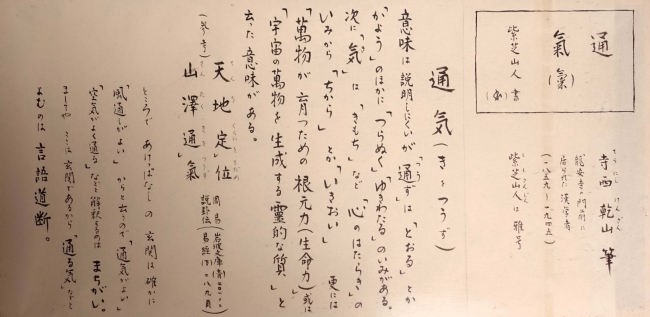 通
氣(氣)
紫芝山人書(印)
てらにし けんざん
寺西乾山筆
龍安寺の門前に
居られた漢学者
(一八五九〜一九四五)
紫芝山人は雅号
通気(きをつうず)
意味は説明しにくいが「通ず」は「とおる」とか
「かよう」のほかに「つらぬく」「ゆきわたる」のいみがある。
次に「気」は「きもち」など「心のはたらき」の
いみから「ちから」とか「いきおい」更には
「萬物が育つための根元力(生命力)或は
「宇宙の萬物を生成する靈的な質」と
云った意味がある。
(参考)
天地定位
山澤通氣
周易 岩波文庫(青)201-2
説卦伝(易経(下)二八九頁)
ところであけっぱなしの玄関は確かに
「風通しがよい」からと云うので「通気がよい」
「空気がよく通る」などと解釈するのはまちがい。
ましてやここは玄関であるから「通る気」などと
よむのは言語道断。